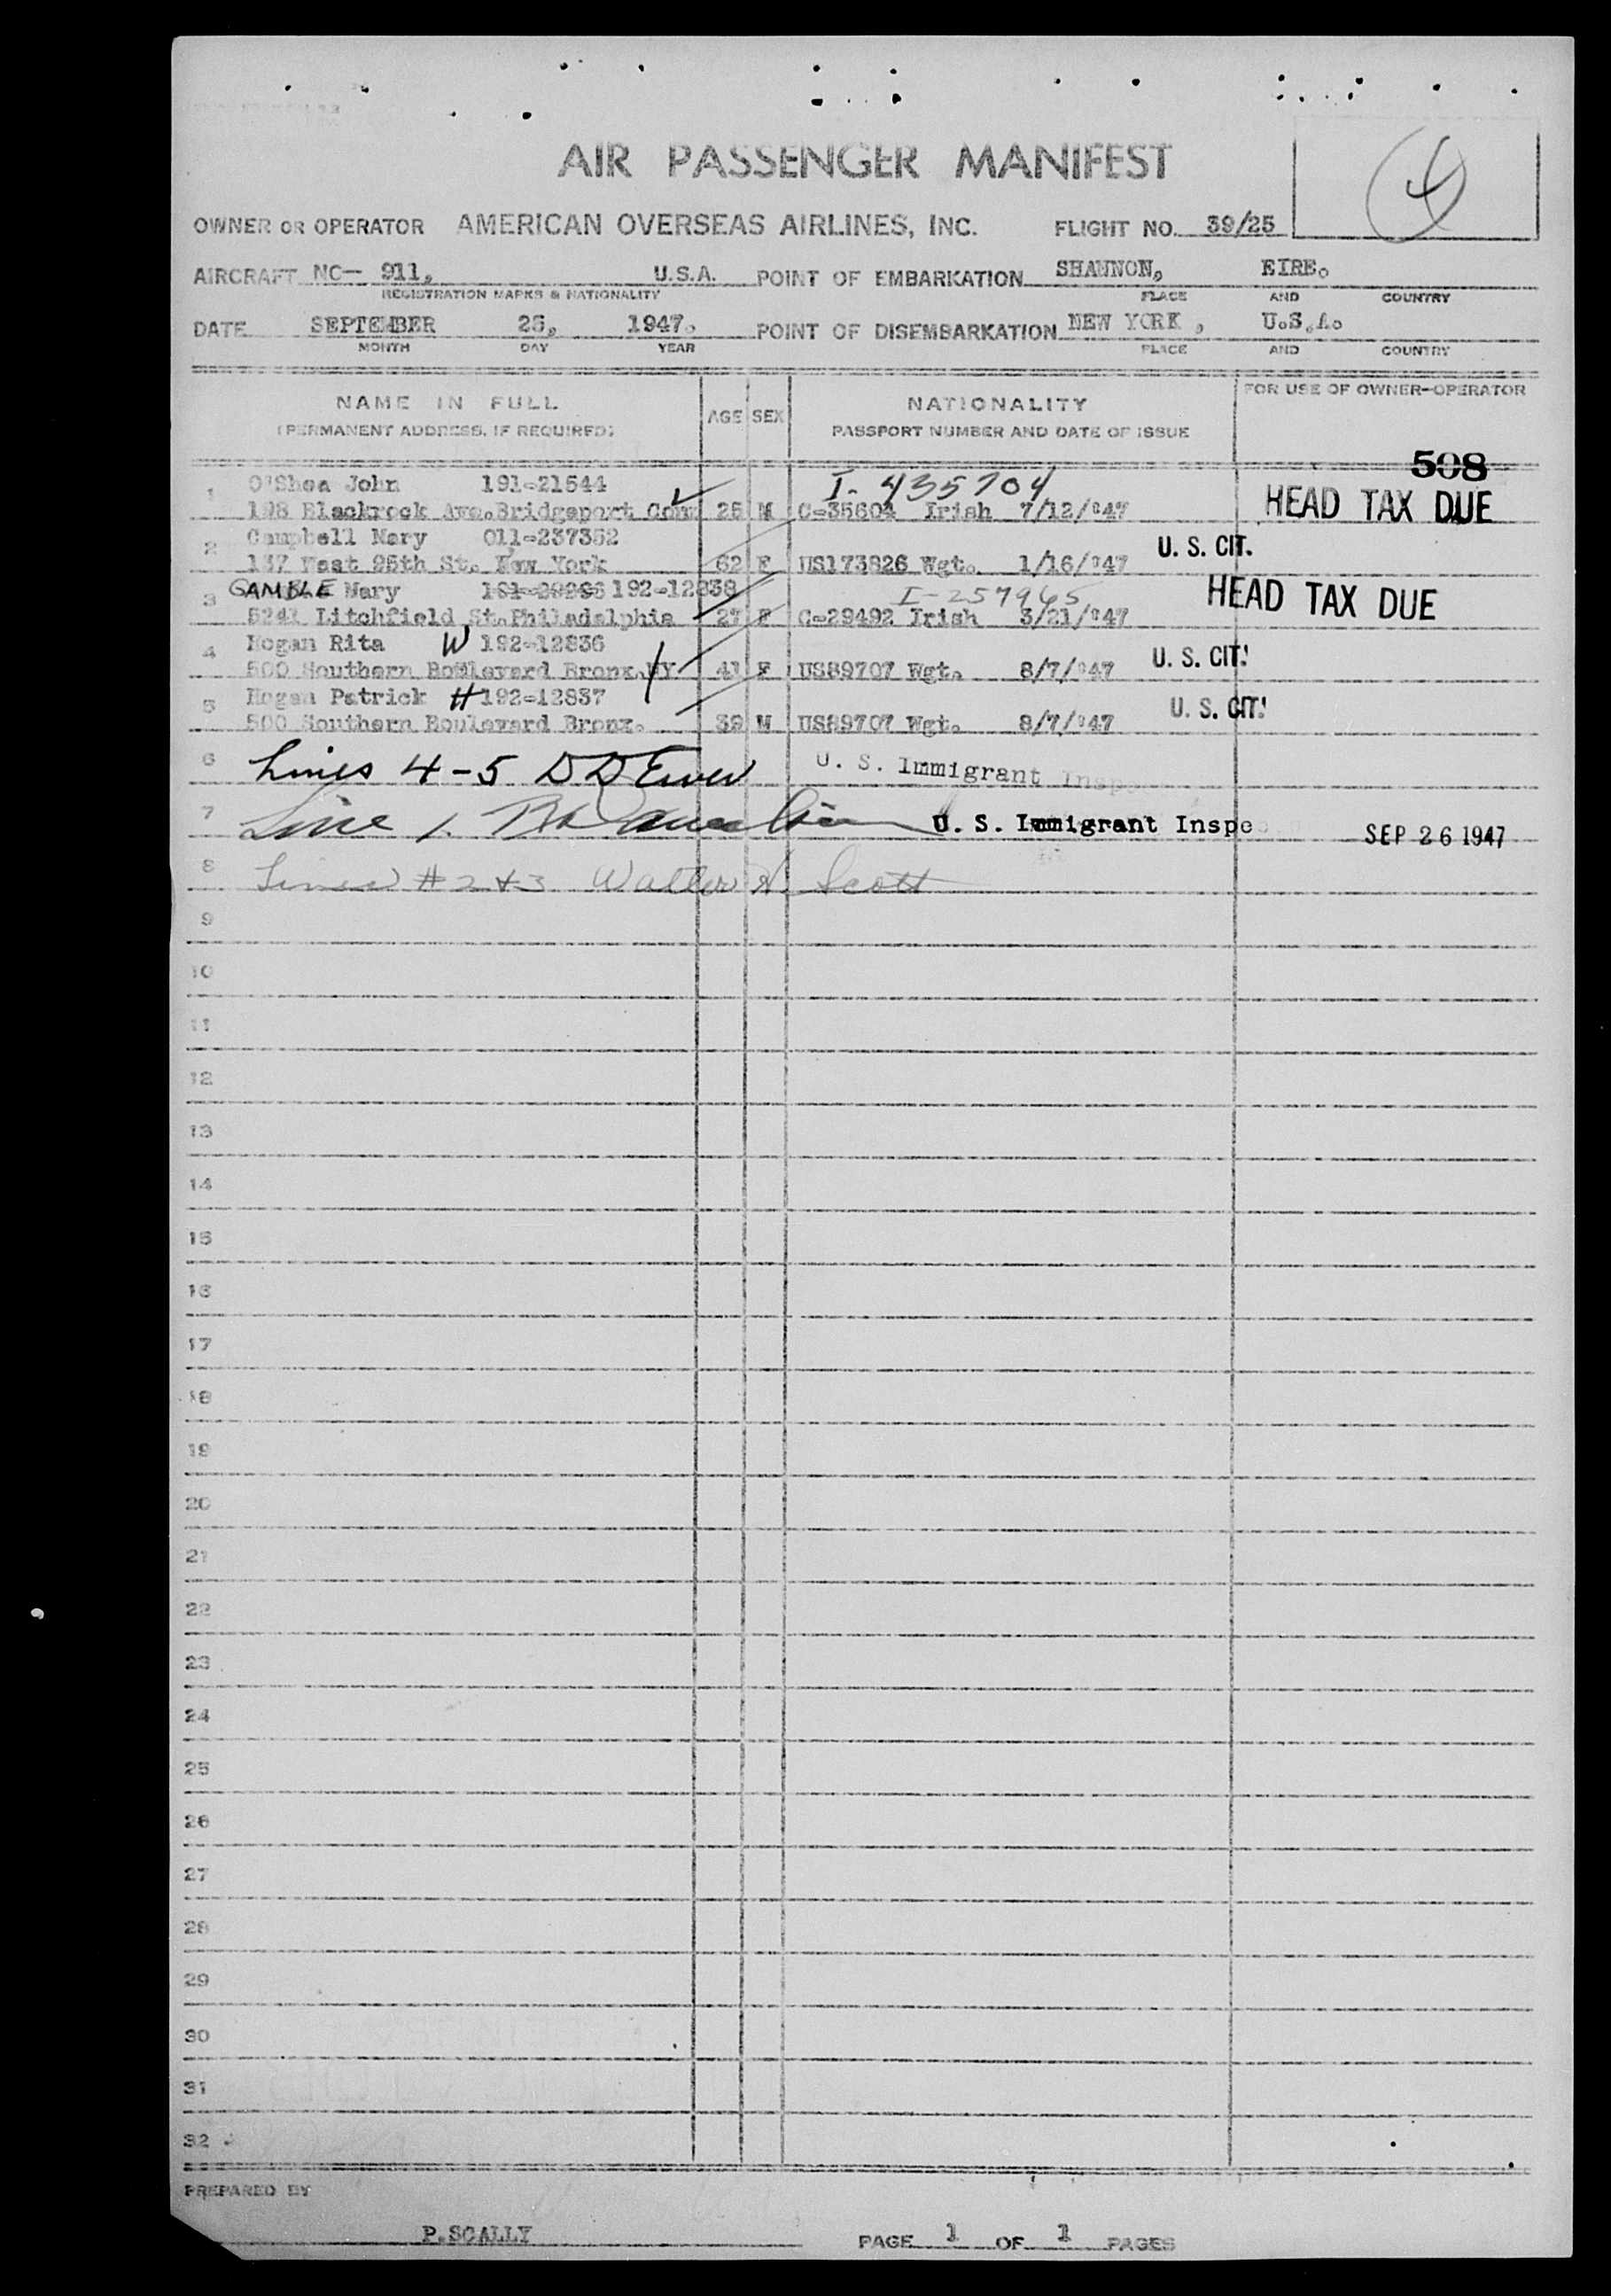 AIR PASSENGER MANIFEST
4
OWNER OR OPERATOR AMERICAN OVERSEAS AIRLINES, INC. FLIGHT NO. 39/25
AIRCRAFT NC- 911, U.S.A. POINT OF EMBARKATION SHANNON, EIRE.
REGISTRATION MARKS & NATIONALITY PLACE AND COUNTRY
DATE SEPTEMBER 25, 1947. POINT OF DISEMBARKATION NEW YORK , U.S.A.
MONTH DAY YEAR PLACE AND COUNTRY
NAME IN FULL AGE SEX NATIONALITY FOR USE OF OWNER-OPERATOR
(PERMANENT ADDRESS, IF REQUIRED) PASSPORT NUMBER AND DATE OF ISSUE
508
1 O'Shea John 191-21544 I-435704 HEAD TAX DUE
198 Blackrock Ave.Bridgeport Conn 25 M C-35604 Irish 7/12/'47
2 Campbell Mary 011-237352 U. S. CIT.
137 West 95th St. New York 62 F US173826 Wgt. 1/16/'47
3 GAMBLE Mary 192-12838 I-257965 HEAD TAX DUE
5241 Litchfield St.Philadelphia 27 F C-29492 Irish 3/21/'47
4 Hogan Rita W 192-12836 U. S. CIT.
500 Southern Boulevard Bronx.NY 41 F US89707 Wgt. 8/7/'47
5 Hogan Patrick H 192-12837 U. S. CIT.
500 Southern Boulevard Bronx. 39 M US89707 Wgt. 8/7/'47
6 Lines 4-5 U. S. Immigrant
7 Line 1. U. S. Immigrant Inspe SEP 26 1947
8 Lines #2+3 Walter A. Scott
9
10
11
12
13
14
15
16
17
18
19
20
21
22
23
24
25
26
27
28
29
30
31
32
PREPARED BY
P.SCALLY PAGE 1 OF 1 PAGES